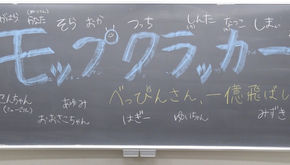 がはら かなた そら おか つっち しんた なっこ しまい
モップクラッカー
べっぴんさん、一億飛ばし
せんちゃん あゆみ おおさこちゃん はぎー ゆいちゃん みずき